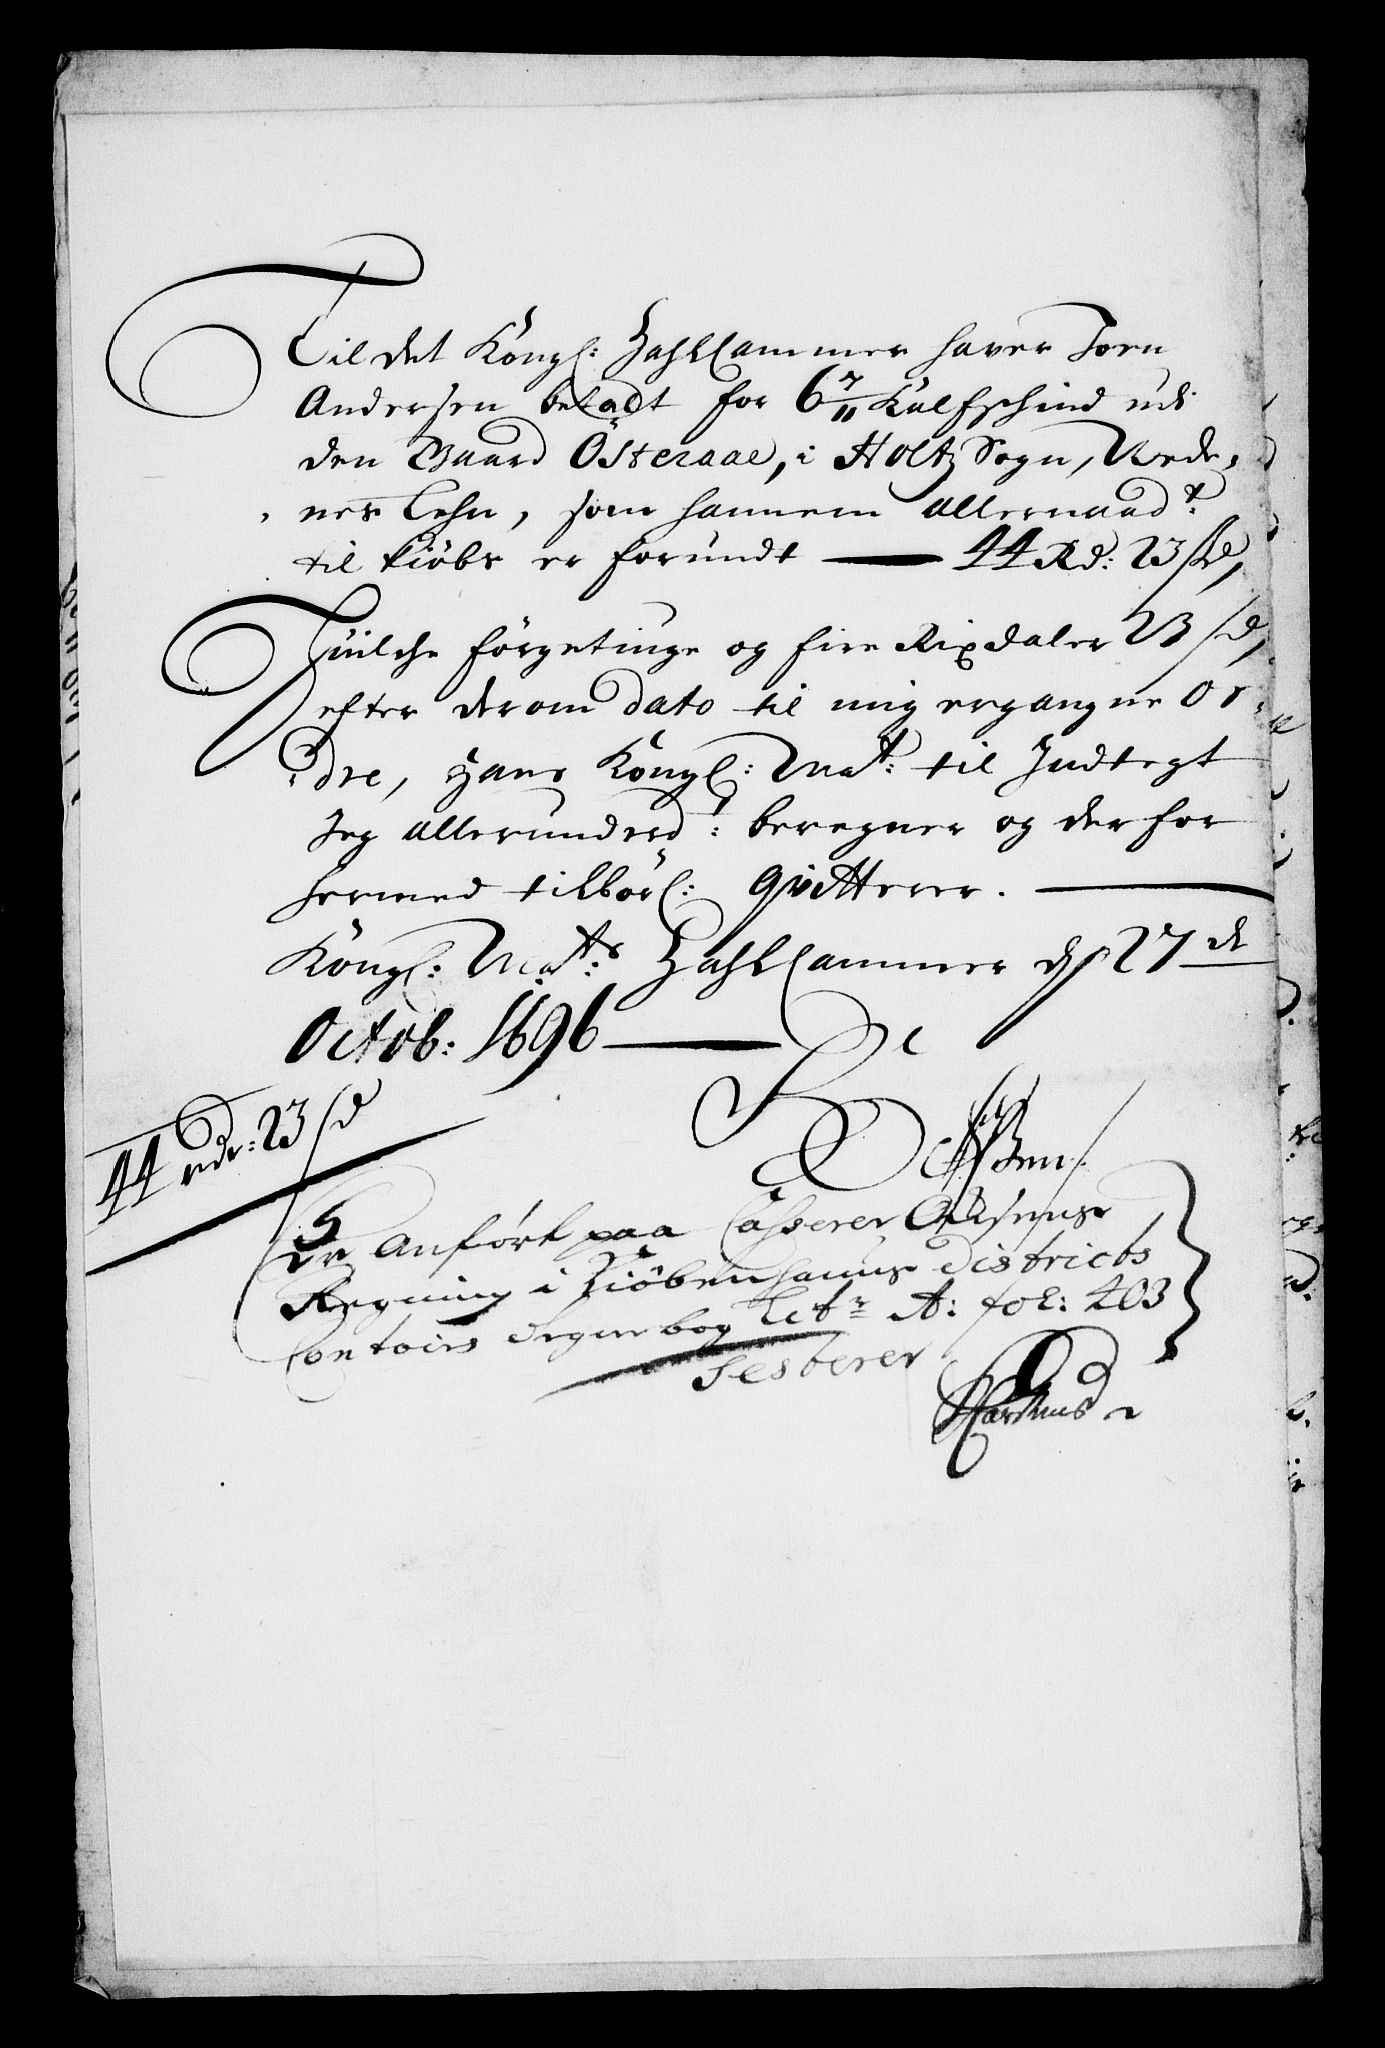 Til det Kongl: Zahlkammer haver Joen
Andersen betalt for 6 7/11 Kalfschind udi
den Gaard Østeraae, i Holtz Sogn, Nede,
nes Lehn, som hannem allernaadt:
til kiøbs er forundt — 44 Rd: 23 sk,
Huilche førgetiuge og fire Rixdaler 23 sk,
efter derom dato til mig ergangne Or,
dre, Hans Kongl: Matt: til Indtegt
Jeg allerunderdt: beregner og derfor
hermed tilbørl: qvitterer.
Kongl: Matts: Zahlkammer d 27 de
Octob: 1696
44 rdr: 23 sk
Er Anført paa Casserer
Regning i Kiøbenhauns Districts
Contoirs Bog Litr A: fol: 403
Testerer